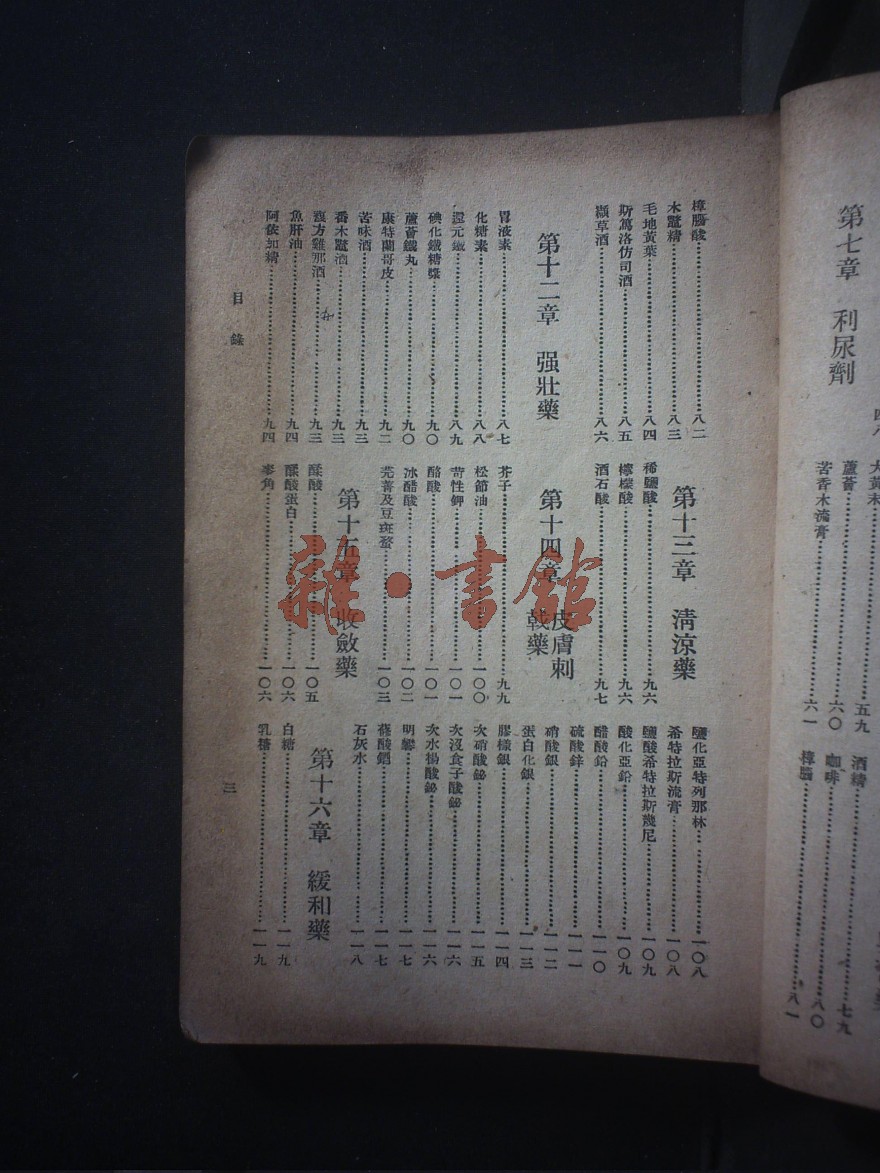 第七章 利尿劑
四八
大黃末……五九
蘆薈……六〇
苦香木流膏……六一
酒精……七九
咖啡……八〇
樟腦……八一
樟腦酸……八二
木鼈精……八三
毛地黃葉……八四
斯篤洛仿司酒……八五
纈草酒……八六
第十二章 强壯藥
胃液素……八七
化糖素……八八
還元鐵……八九
碘化鐵糖漿……九〇
蘆薈鐵丸……九〇
康特蘭哥皮……九二
苦味酒……九三
番木鼈酒……九三
複方雞那酒……九三
魚肝油……九四
阿依加精……九四
第十三章 清涼藥
稀鹽酸……九六
檸檬酸……九六
酒石酸……九七
第十四章 皮膚刺戟藥
芥子……九九
松節油……一〇〇
苛性鉀……一〇一
醋酸……一〇一
冰醋酸……一〇二
芫菁及豆斑蝥……一〇三
第十五章 收斂藥
鞣酸……一〇五
鞣酸蛋白……一〇六
麥角……一〇六
鹽化亞特列那林……一〇八
希特拉斯流膏……一〇八
鹽酸希特拉斯幾尼……一〇九
酸化亞鉛……一〇九
醋酸鉛……一一〇
硫酸鋅……一一一
硝酸銀……一一二
蛋白化銀……一一三
膠樣銀……一一四
次硝酸鉍……一一五
次沒食子酸鉍……一一六
次水楊酸鉍……一一六
明礬……一一七
蓚酸鍶……一一七
石灰水……一一八
第十六章 緩和藥
白糖……一一九
乳糖……一一九
目錄
三
雜·書館